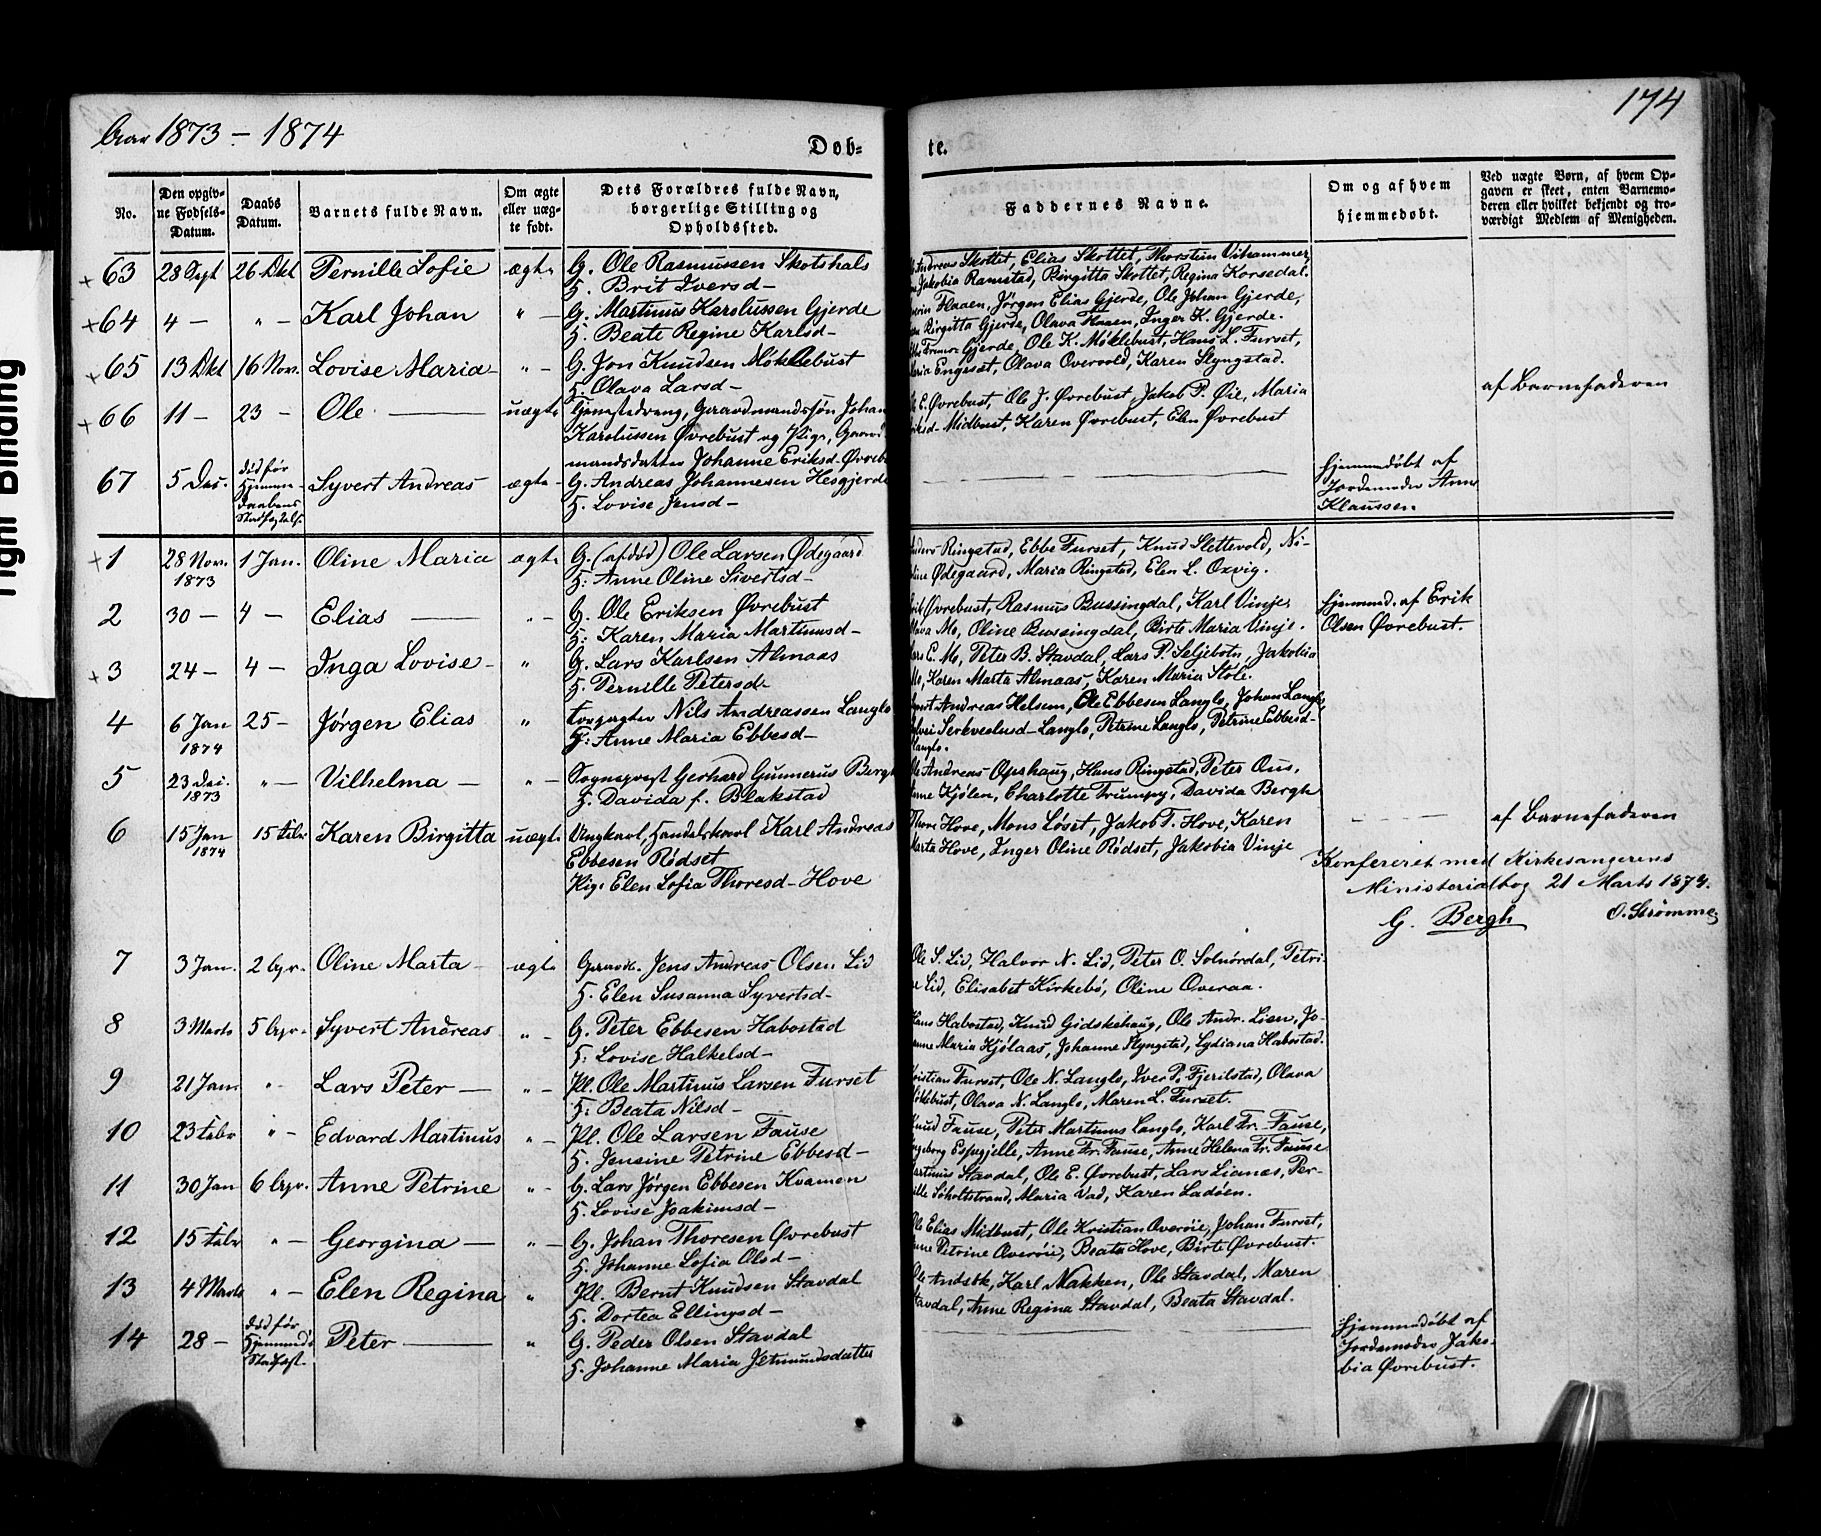 Aar 1873 - 1874
174
Døb-
te.
No.
Den opgiv-
ne Fødsels-
Datum.
Daabs
Datum.
Barnets fulde Navn.
Om ægte
eller uæg-
te født.
Dets Forældres fulde Navn,
borgerlige Stilling og
Opholdssted.
Faddernes Navne.
Om og af hvem
hjemmedøbt.
Ved uægte Børn, af hvem Op-
gaven er skeet, enten Barnemo-
deren eller hvilket bekjendt og tro-
værdigt Medlem af Menigheden.
+ 63 28 Sept 26 Okt Pernille Sofie ægte G. Ole Rasmussen Skotshals
H. Brit Iversd-
Andreas Skottet, Elias Skottet, Thorstein Vihammer,
Jakobia Ramstad, Ringitta Skottet, Regina Korsedal.
+ 64 4 - " - Karl Johan " - G. Martinus Karolussen Gjerde
H. Beate Regine Karlsd-
Flaaen, Jørgen Elias Gjerde, Ole Johan Gjerde,
Birgitta Gjerde, Olava Flaaen, Inger K. Gjerde.
+ 65 13 Okt 16 Nov. Lovise Maria- " - G. Jon Knudsen Møklebust
H. Olava Larsd-
Gjerde, Ole K. Møklebust, Hans L. Furset,
Engeset, Olava Overvold, Karen Slyngstad.
+ 66 11 - 23 - Ole - uægte Johan
Karolussen Øvrebust og Pige,
Johanne Eriksd-
E. Øvrebust, Ole J. Øvrebust, Jakob P. Øie, Maria
Midbust, Karen Øvrebust, Elen Øvrebust
af Barnefaderen
67 5 Des. død før
Hjemme-
daabens
Stadfæstels.
Syvert Andreas ægte - G. Andreas Johannesen Hesgjerde
H. Lovise Jensd-
Hjemmedøbt af
Jordemoder Anne
Klaussen.
+ 1 28 Nov.
1873
1 Jan. Oline Maria ægte G. (afdød) Ole Larsen Ødegaard
H: Anne Oline Sivertsd-
Ringstad, Ebbe Furset, Knud Slettevold, Ni-
Ødegaard, Maria Ringstad, Elen L. Oxvig.
2 30 - 4 - Elias - " - G. Ole Eriksen Øvrebust
H: Karen Maria Martinusd-
Øvrebust, Rasmus Bussingdal, Karl Vinje,
Mo, Oline Bussingdal, Birte Maria Vinje.
Hjemmed. af Erik
Olsen Øvrebust.
+ 3 24 - 4 - Inga Lovise- " G. Lars Karlsen Almaas
H. Pernille Petersd-
E. Mo, Peter B. Stavdal, Lars P. Seljebotn, Jakobia
Mo, Karen Marta Almaas, Karen Maria Stole.
4 6 Jan
1874
25 - Jørgen Elias " Nils Andreassen Langlo
H: Anne Maria Ebbesd-
Andreas Helsem, Ole Ebbesen Langlo, Johan Langlo,
Langlo, Petrine Langlo, Petrine Ebbesd-
Langlo.
5 23 Des.
1873
" - Vilhelma - " - Sogneprest Gerhard Gunnerus Bergh
H. Davida f. Blakstad
Andreas Opshaug, Hans Ringstad, Peter Ous,
Kjølen, Charlotte Trumpy, Davida Bergh
6 15 Jan
1874
15 Febr Karen Birgitta uægte Ungkarl, Handelskarl Karl Andreas
Ebbesen Rødset
Pige Elen Sofia Thoresd- Hove
Thore Hove, Mons Løset, Jakob T. Hove, Karen
Marta Hove, Inger Oline Rødset, Jakobia Vinje
af Barnefaderen
Konfereret med Kirkesangerens
Ministerialbog 21 Marts 1874.
G. Bergh O. Strømme
7 3 Jan. 2 Apr. Oline Marta - ægte Jens Andreas Olsen Lid
H. Elen Susanna Syvertsd-
Ole S. Lid, Halvor N. Lid, Peter O. Solnørdal, Petri-
ne Lid, Elisabet Kirkebø, Oline Overaa.
8 3 Marts 5 Apr. Syvert Andreas " - G. Peter Ebbesen Habostad
H: Lovise Halkelsd-
Hans Habostad, Knud Gidskehaug, Ole Andr. Lien, Jo-
Maria Hjølaas, Johanne Slyngstad, Lydiana Habostad.
9 21 Jan " - Lars Peter - " - Pl. Ole Martinus Larsen Furset
H: Beata Nilsd-
Kristian Furset, Ole N. Langlo, Iver P. Fjerilstad, Olava
Møklebust, Olava N. Langlo, Maren L. Furset.
10 23 Febr " - Edvard Martinus " - Pl. Ole Larsen Fause
H. Jensine Petrine Ebbesd-
Knud Fause, Peter Martinus Langlo, Karl Fr. Fause,
Ingeborg Espegjelle, Anne Fr. Fause, Anne Helena Fr. Fause
11 30 Jan 6 Apr. Anne Petrine " - G. Lars Jørgen Ebbesen Kvamen
H. Lovise Joakimsd-
Martinus Stavdal, Ole E. Øvrebust, Lars Lianes, Per-
nille Søholtstrand, Maria Vad, Karen Ladøen.
12 15 Febr " - Georgina - " - G. Johan Thoresen Øvrebust
H. Johanne Sofia Olsd-
Ole Elias Midbust, Ole Kristian Overøie, Johan Furset,
Petrine Overøie, Beata Hove, Birte Øvrebust.
13 4 Marts " - Elen Regina " Pl. Bernt Knudsen Stavdal
H. Dortea Ellingsd-
Ole Andsøk, Karl Nakken, Ole Stavdal, Maren
Stavdal, Anne Regina Stavdal, Beata Stavdal.
14 28 - død før
Hjemmed's
Stadfæst.
Peter - " G. Peder Olsen Stavdal
H. Johanne Maria Jetmundsdatter
Hjemmedøbt af
Jordemoder Jako-
bia Øvrebust.
Tight Binding